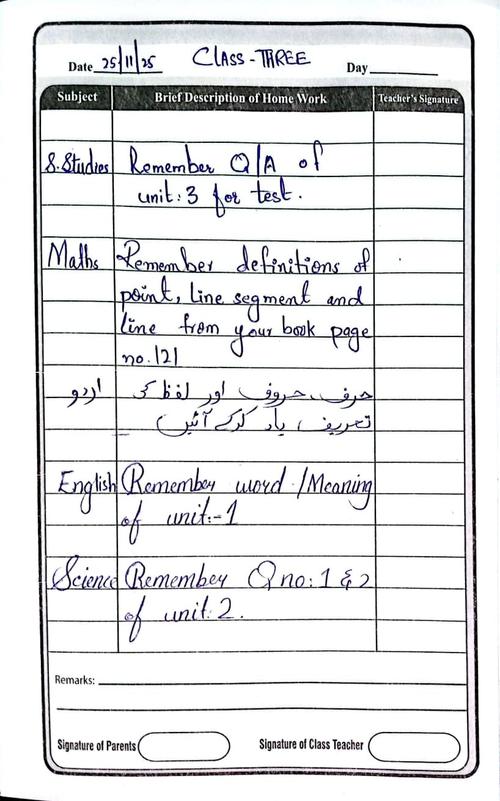 Date 25/11/25 CLASS-THREE Day
Subject Brief Description of Home Work Teacher's Signature
S.Studies Remember Q/A of
unit: 3 for test.
Maths Remember definitions of
point, line segment and
line from your book page
no. 121
اردو حرف، حروف اور لفظ کی
تعریف یاد کرکے آئیں
English Remember word /Meaning
of unit:-1
Science Remember Q no: 1 & 2
of unit 2.
Remarks:
Signature of Parents Signature of Class Teacher